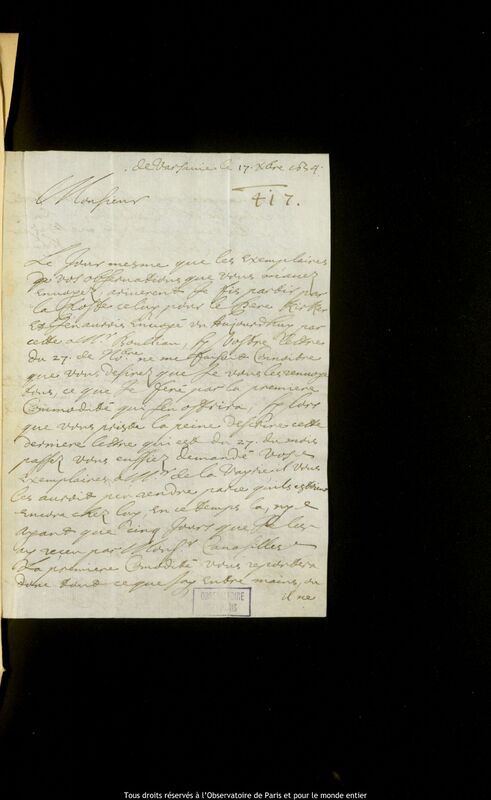 de Varsavie le 17. Xbre 1654.
417.
Monsieur
Le Jour mesme que les Exemplaires
de vos observations que vous m'aviez
Envoyez arriverent Je fis partir par
la Poste celuy pour le Pere Kirker
Et J'en aurois Envoyé un Aujourdhuy par
cette a Mr. Boulliau, si vostre lettre
du 27. de 9bre. ne me faisoit Connoitre
que vous desirez que Je vous les renvoye
tous, ce que Je feré par la premiere
Commodité qui s'en offrira, si lors
que vous pristes la peine d'escrire cette
derniere lettre qui est du 27. du mois
passé vous eussiez demandé vos
Exemplaires a Mr. de la Vayrie il vous
les auroit peu rendre parce qu'ils estoient
encore chez luy En ce temps la, n'y
ayant que cinq Jours que Je les
ay receu par Monsr. Canasilles
La premiere Comodité vous respondera
donc tout ce que J'ay Entre mains, ou
il ne
OBSERVATOIRE
DE PARIS
Tous droits réservés à l'Observatoire de Paris et pour le monde entier